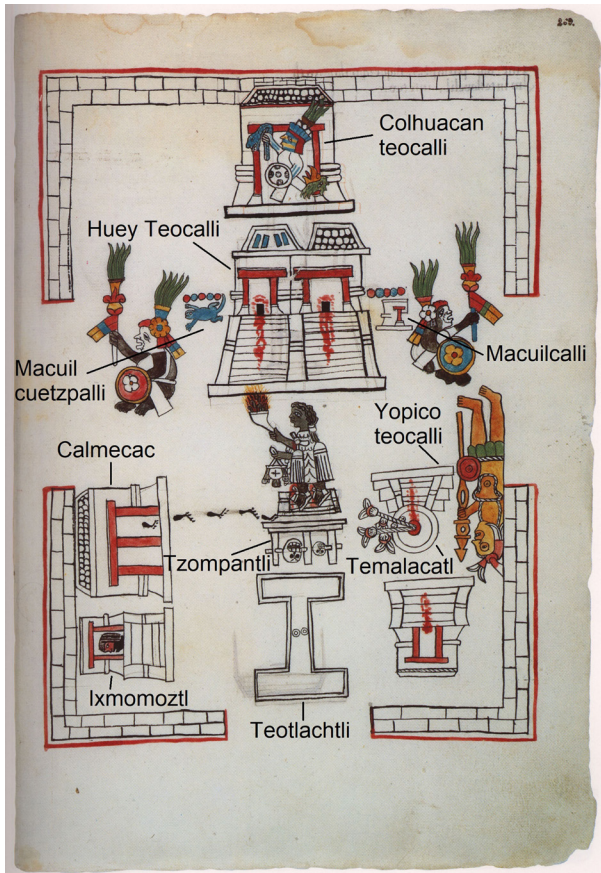 Colhuacan
teocalli
Huey Teocalli
Macuil
cuetzpalli
Macuilcalli
Yopico
teocalli
Calmecac
Tzompantli
Temalacatl
Ixmomoztl
Teotlachtli